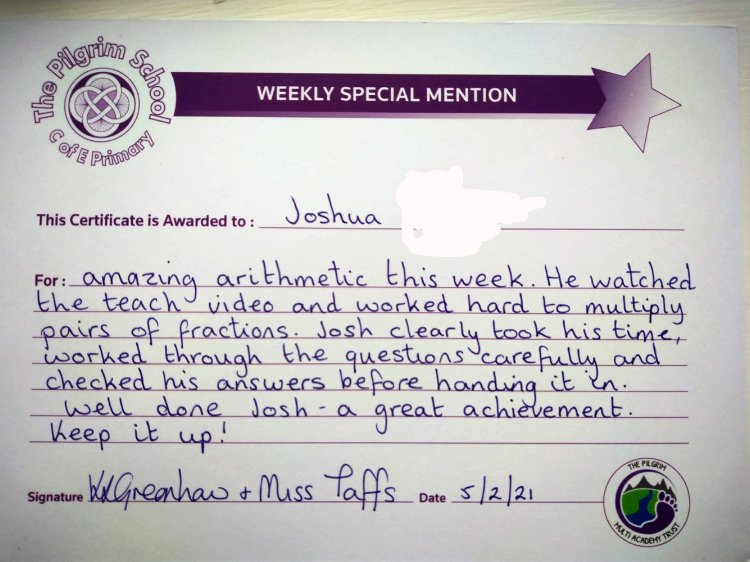 The Pilgrim School
C of E Primary
WEEKLY SPECIAL MENTION
This Certificate is Awarded to : Joshua
For : amazing arithmetic this week. He watched
the teach video and worked hard to multiply
pairs of fractions. Josh clearly took his time,
worked through the questions carefully and
checked his answers before handing it in.
Well done Josh - a great achievement.
Keep it up!
Signature Greenhaw + Miss Taffs Date 5/2/21
THE PILGRIM
MULTI ACADEMY TRUST